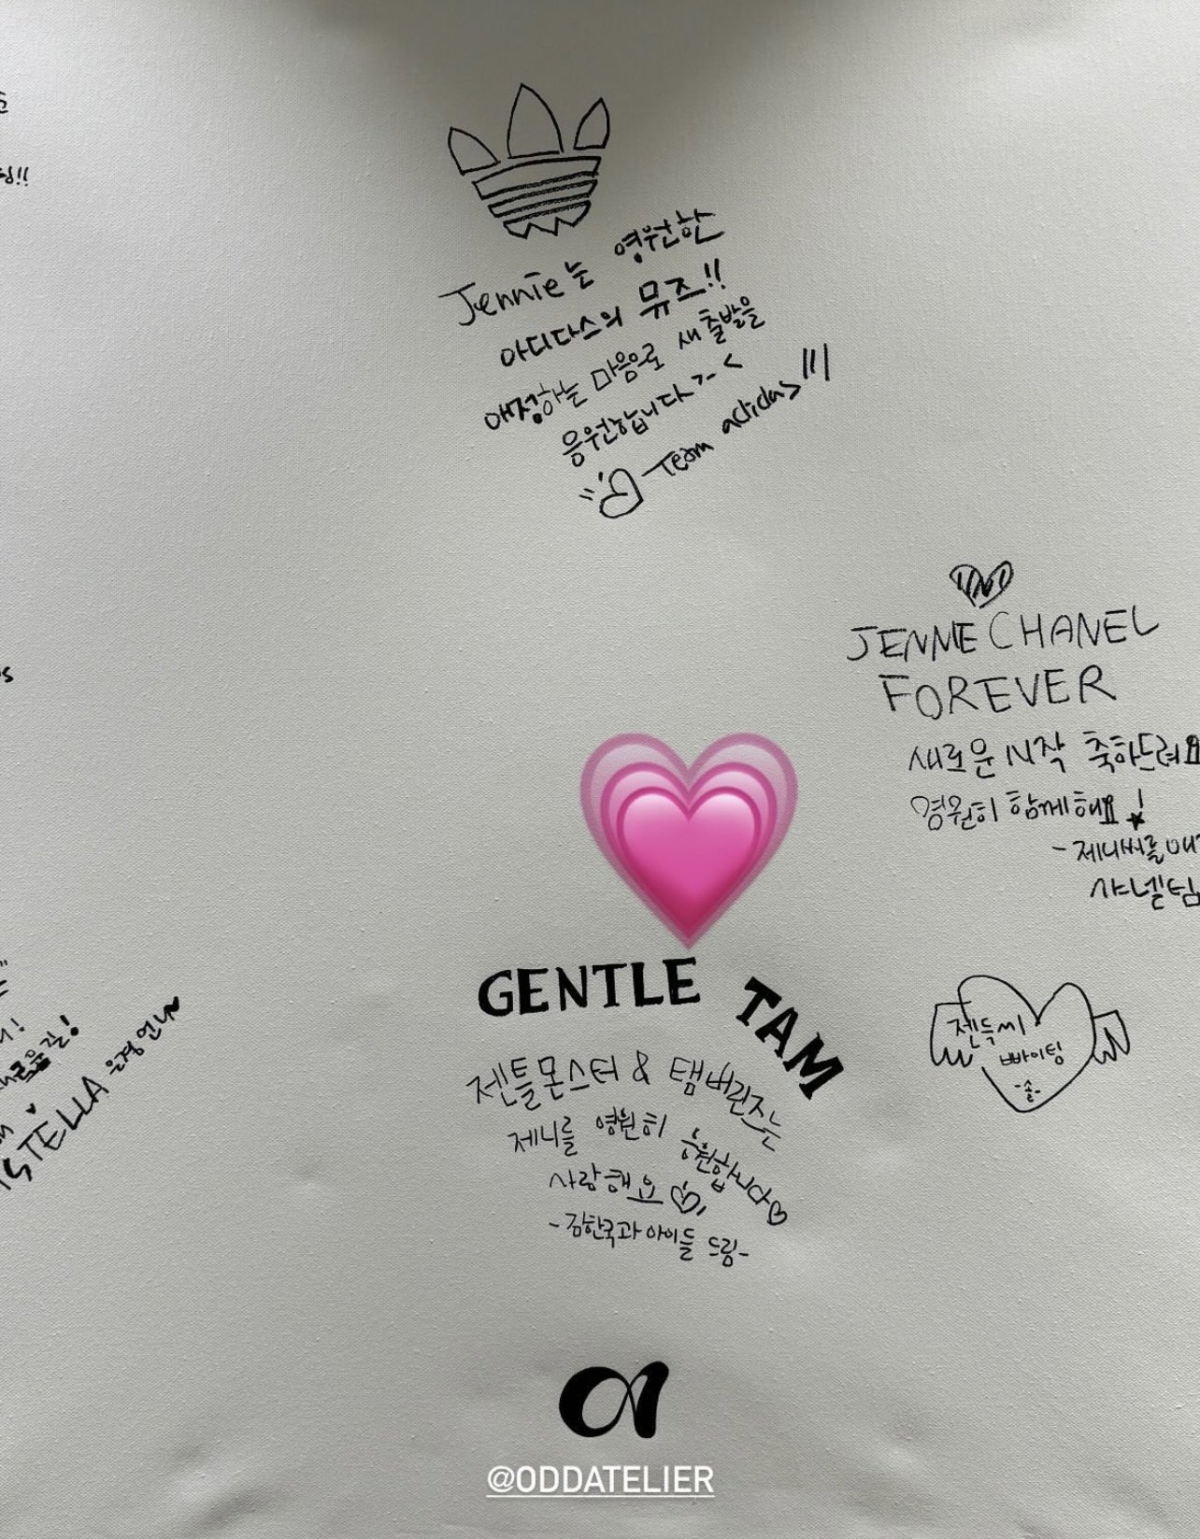 Jennie는 영원한
아디다스의 뮤즈!!
애정하는 마음으로 새 출발을
응원합니다 >-<
Team adidas
JENNIE CHANEL
FOREVER
새로운 시작 축하드려요
영원히 함께해요!
- 제니씨를
샤넬팀
GENTLE TAM
젠틀몬스터 & 탬버린즈는
제니를 영원히 응원합니다
사랑해요
-김한국과 아이들 드림-
젠득씨
빠이팅
-솔-
STELLA 은경언니~
@ODDATELIER